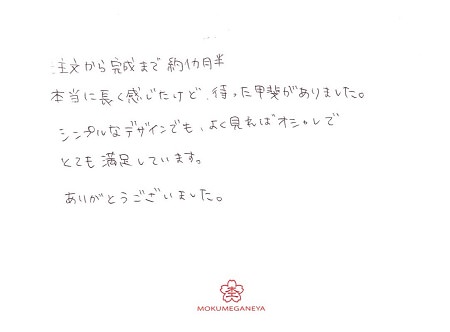 注文から完成まで約1カ月半
本当に長く感じたけど、待った甲斐がありました。
シンプルなデザインでも、よく見ればオシャレで
とても満足しています。
ありがとうございました。
MOKUMEGANEYA